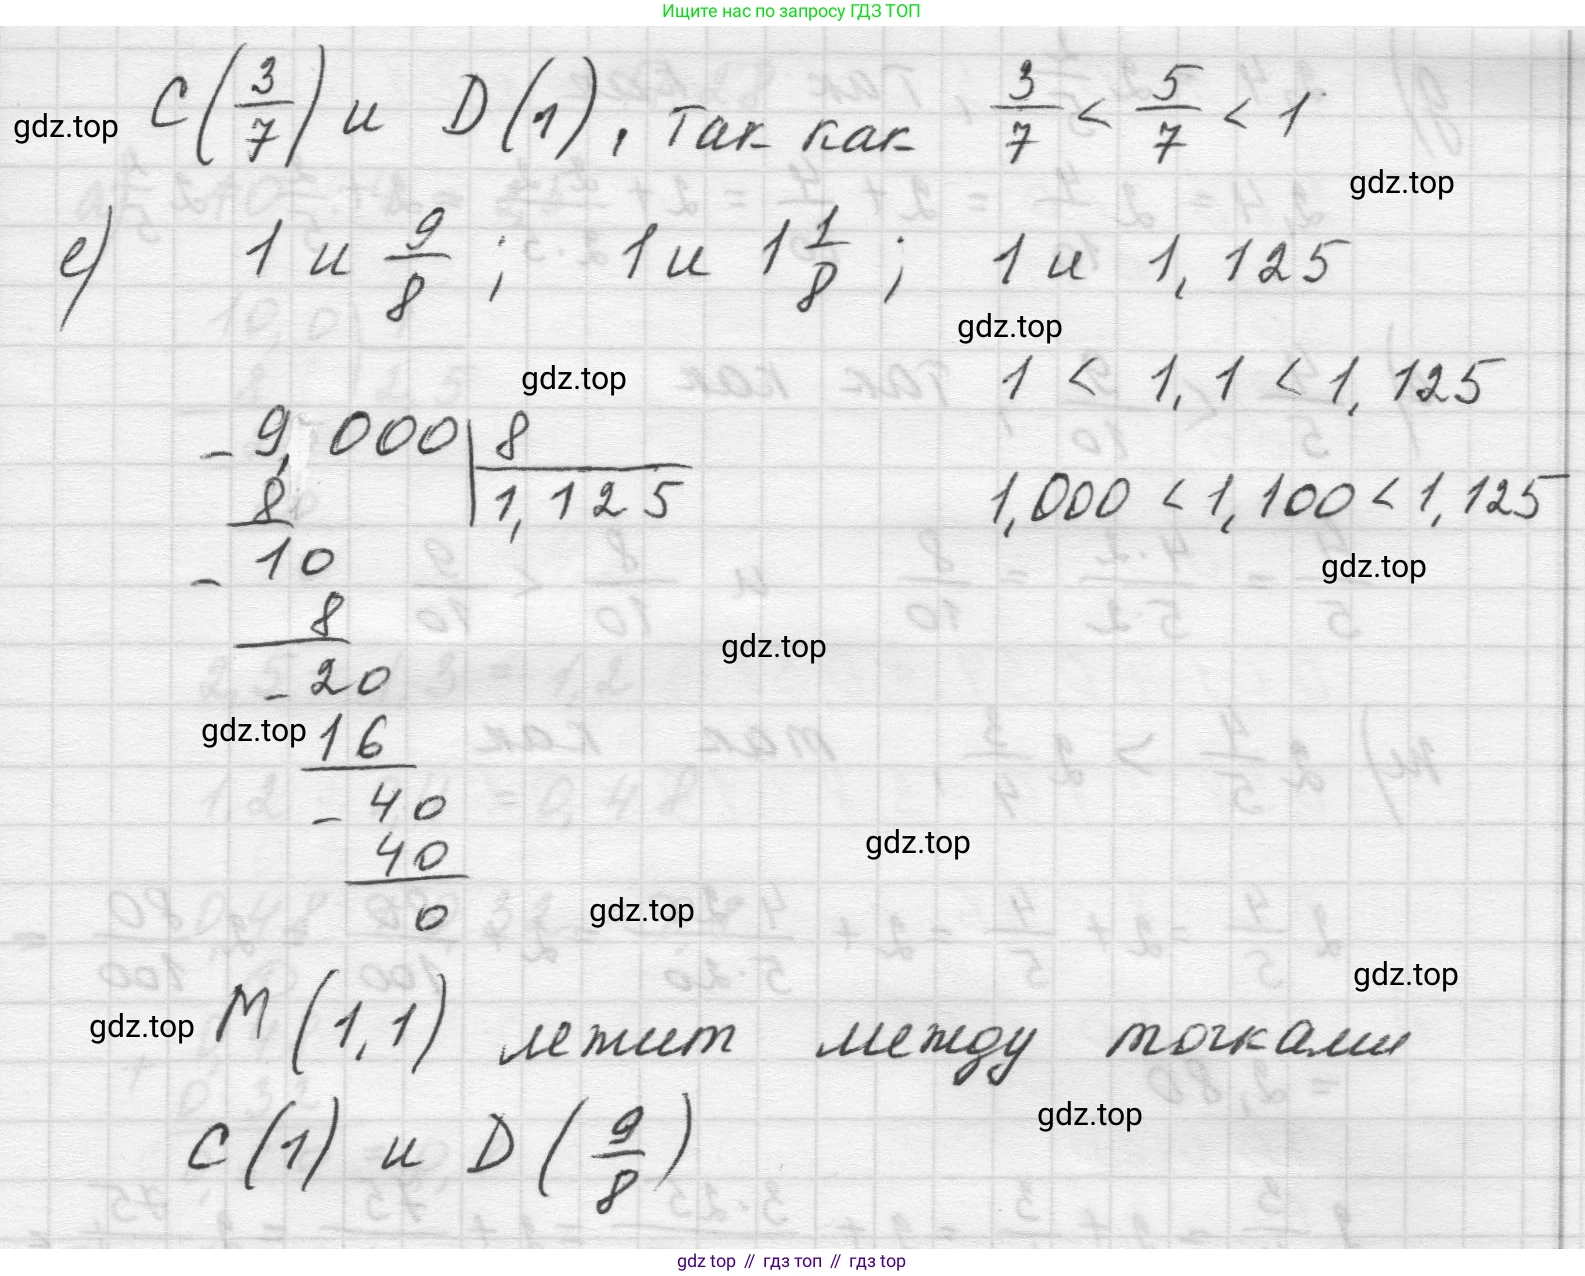 Ищите нас по запросу ГДЗ ТОП
C(3/7) и D(1), так как 3/7 < 5/7 < 1
gdz.top
gdz.top
е) 1 и 9/8; 1 и 1 1/8; 1 и 1,125
gdz.top
gdz.top
1 < 1,1 < 1,125
- 9,000 | 8
8 1,125
1,000 < 1,100 < 1,125
- 10
gdz.top
8
gdz.top
- 20
gdz.top
16
- 40
gdz.top
40
0
gdz.top
gdz.top
gdz.top
M(1,1) лежит между точками
gdz.top
C(1) и D(9/8)
gdz.top // гдз топ // гдз top